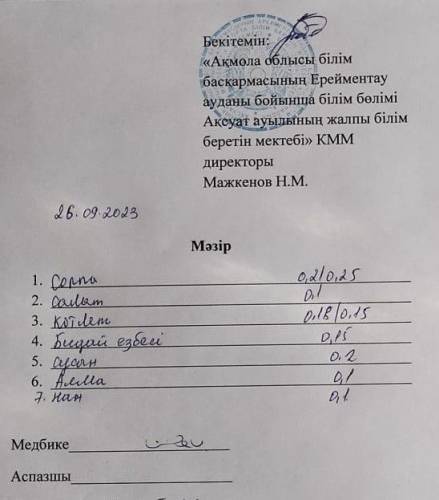 Бекітемін:
«Ақмола облысы білім
басқармасының Ерейментау
ауданы бойынша білім бөлімі
Ақсуат ауылының жалпы білім
беретін мектебі» КММ
директоры
Мажкенов Н.М.
26.09.2023
Мәзір
1. Сорпа 0,2/0,25
2. салат 0,1
3. котлет 0,18/0,15
4. Бидай езбесі 0,15
5. сусын 0.2
6. Алма 0,1
7. нан 0,1
Медбике
Аспазшы